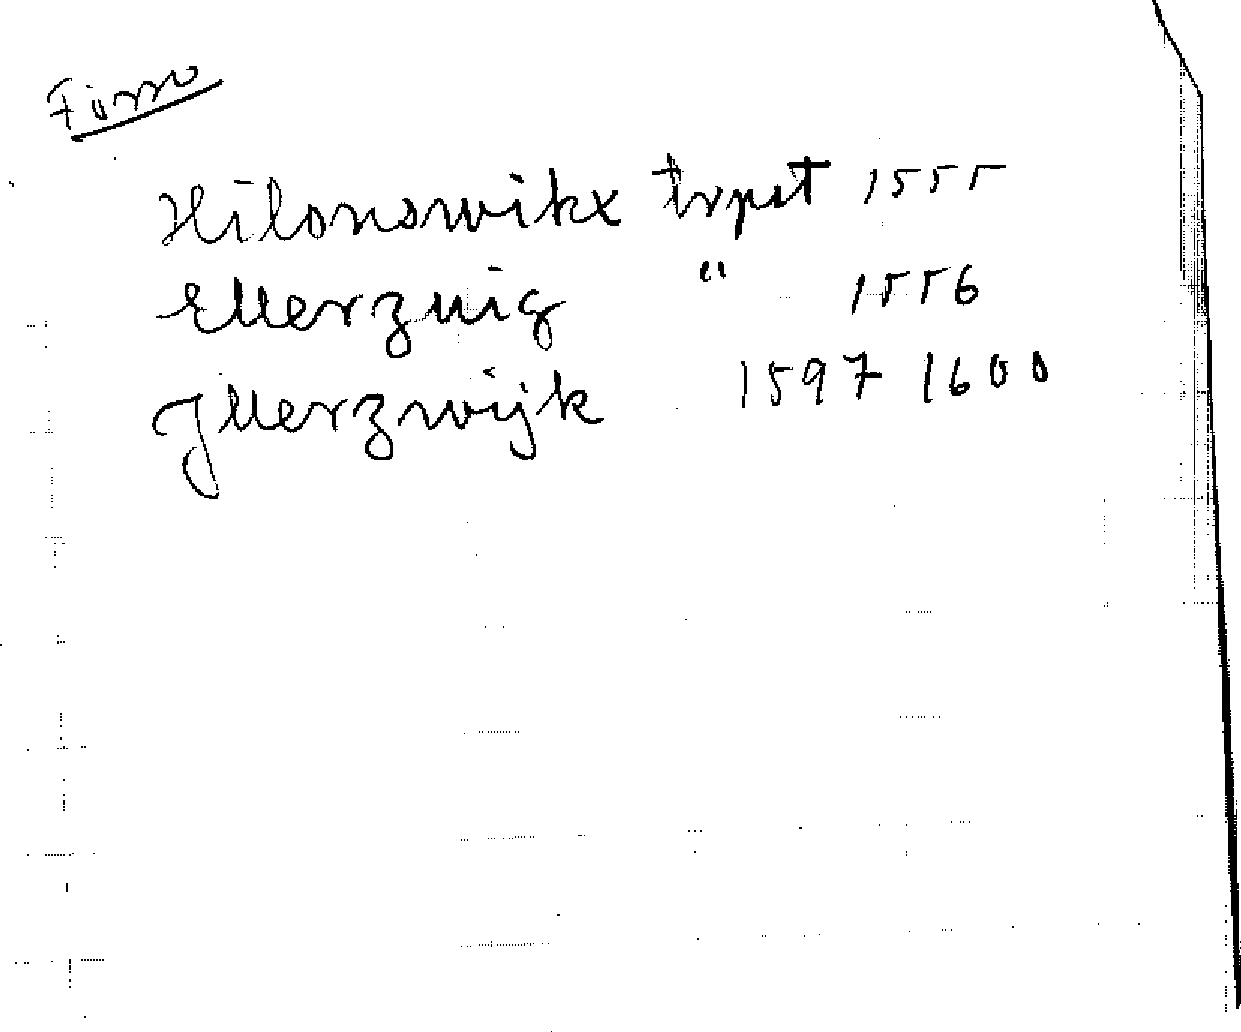 Finno
Hilonswikx trpst 1555
Ellerzuig " 1556
Jllerzwijk 1597 1600